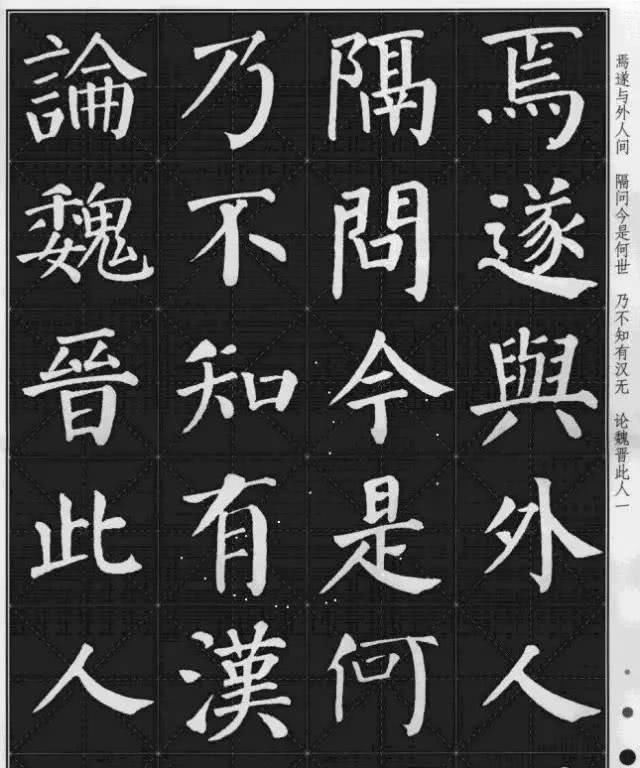 焉遂與外人
隔問今是何
乃不知有漢
論魏晉此人
焉遂与外人间 隔问今是何世 乃不知有汉无 论魏晋此人一